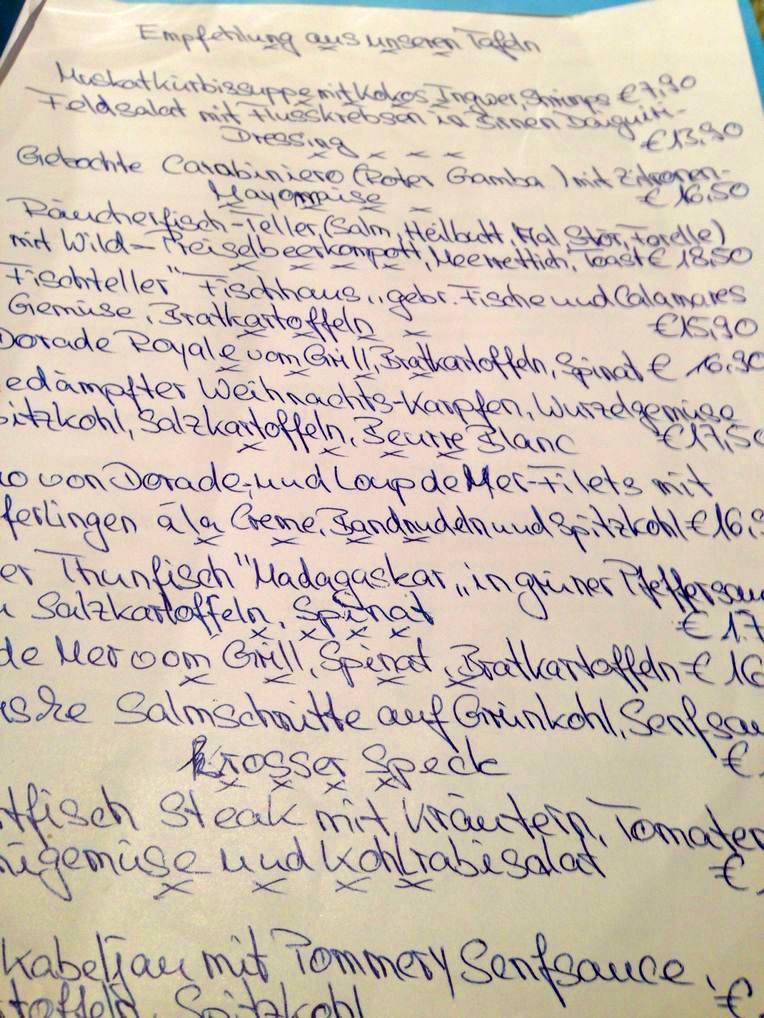 Empfehlung aus unseren Tafeln
Muskatkürbissuppe mit Kokos, Ingwer, Shrimps €7,90
Feldsalat mit Flusskrebsen in Birnen Daiquiri-
Dressing €13,90
Gekochte Carabiniero (Roter Gamba) mit Zitronen-
Mayonnaise € 16,50
Räucherfisch-Teller, (Salm, Heilbutt, Aal, Stör, Forelle)
mit Wild-Preiselbeerkompott, Meerrettich, Toast € 18,50
Fischteller "Fischhaus" gebr. Fische und Calamares
Gemüse, Bratkartoffeln €15,90
Dorade Royale vom Grill, Bratkartoffeln, Spinat € 16,90
edämpfter Weihnachts-Karpfen, Wurzelgemüse
itzkohl, Salzkartoffeln, Beurre Blanc €17,50
o von Dorade- und Loup de Mer-Filets mit
ferlingen á la Creme, Bandnudeln und Spitzkohl €16,9
er Thunfisch "Madagaskar" in grüner Pfeffersau
Salzkartoffeln, Spinat € 17
de Mer vom Grill, Spinat, Bratkartoffeln € 16
ske Salmschnitte auf Grünkohl, Senfsau
Krosser Speck €
tfisch Steak mit Kräutern, Tomaten
igemüse und Kohlrabisalat €
kabeljau mit Pommery Senfsauce,
toffeln, Spitzkohl €